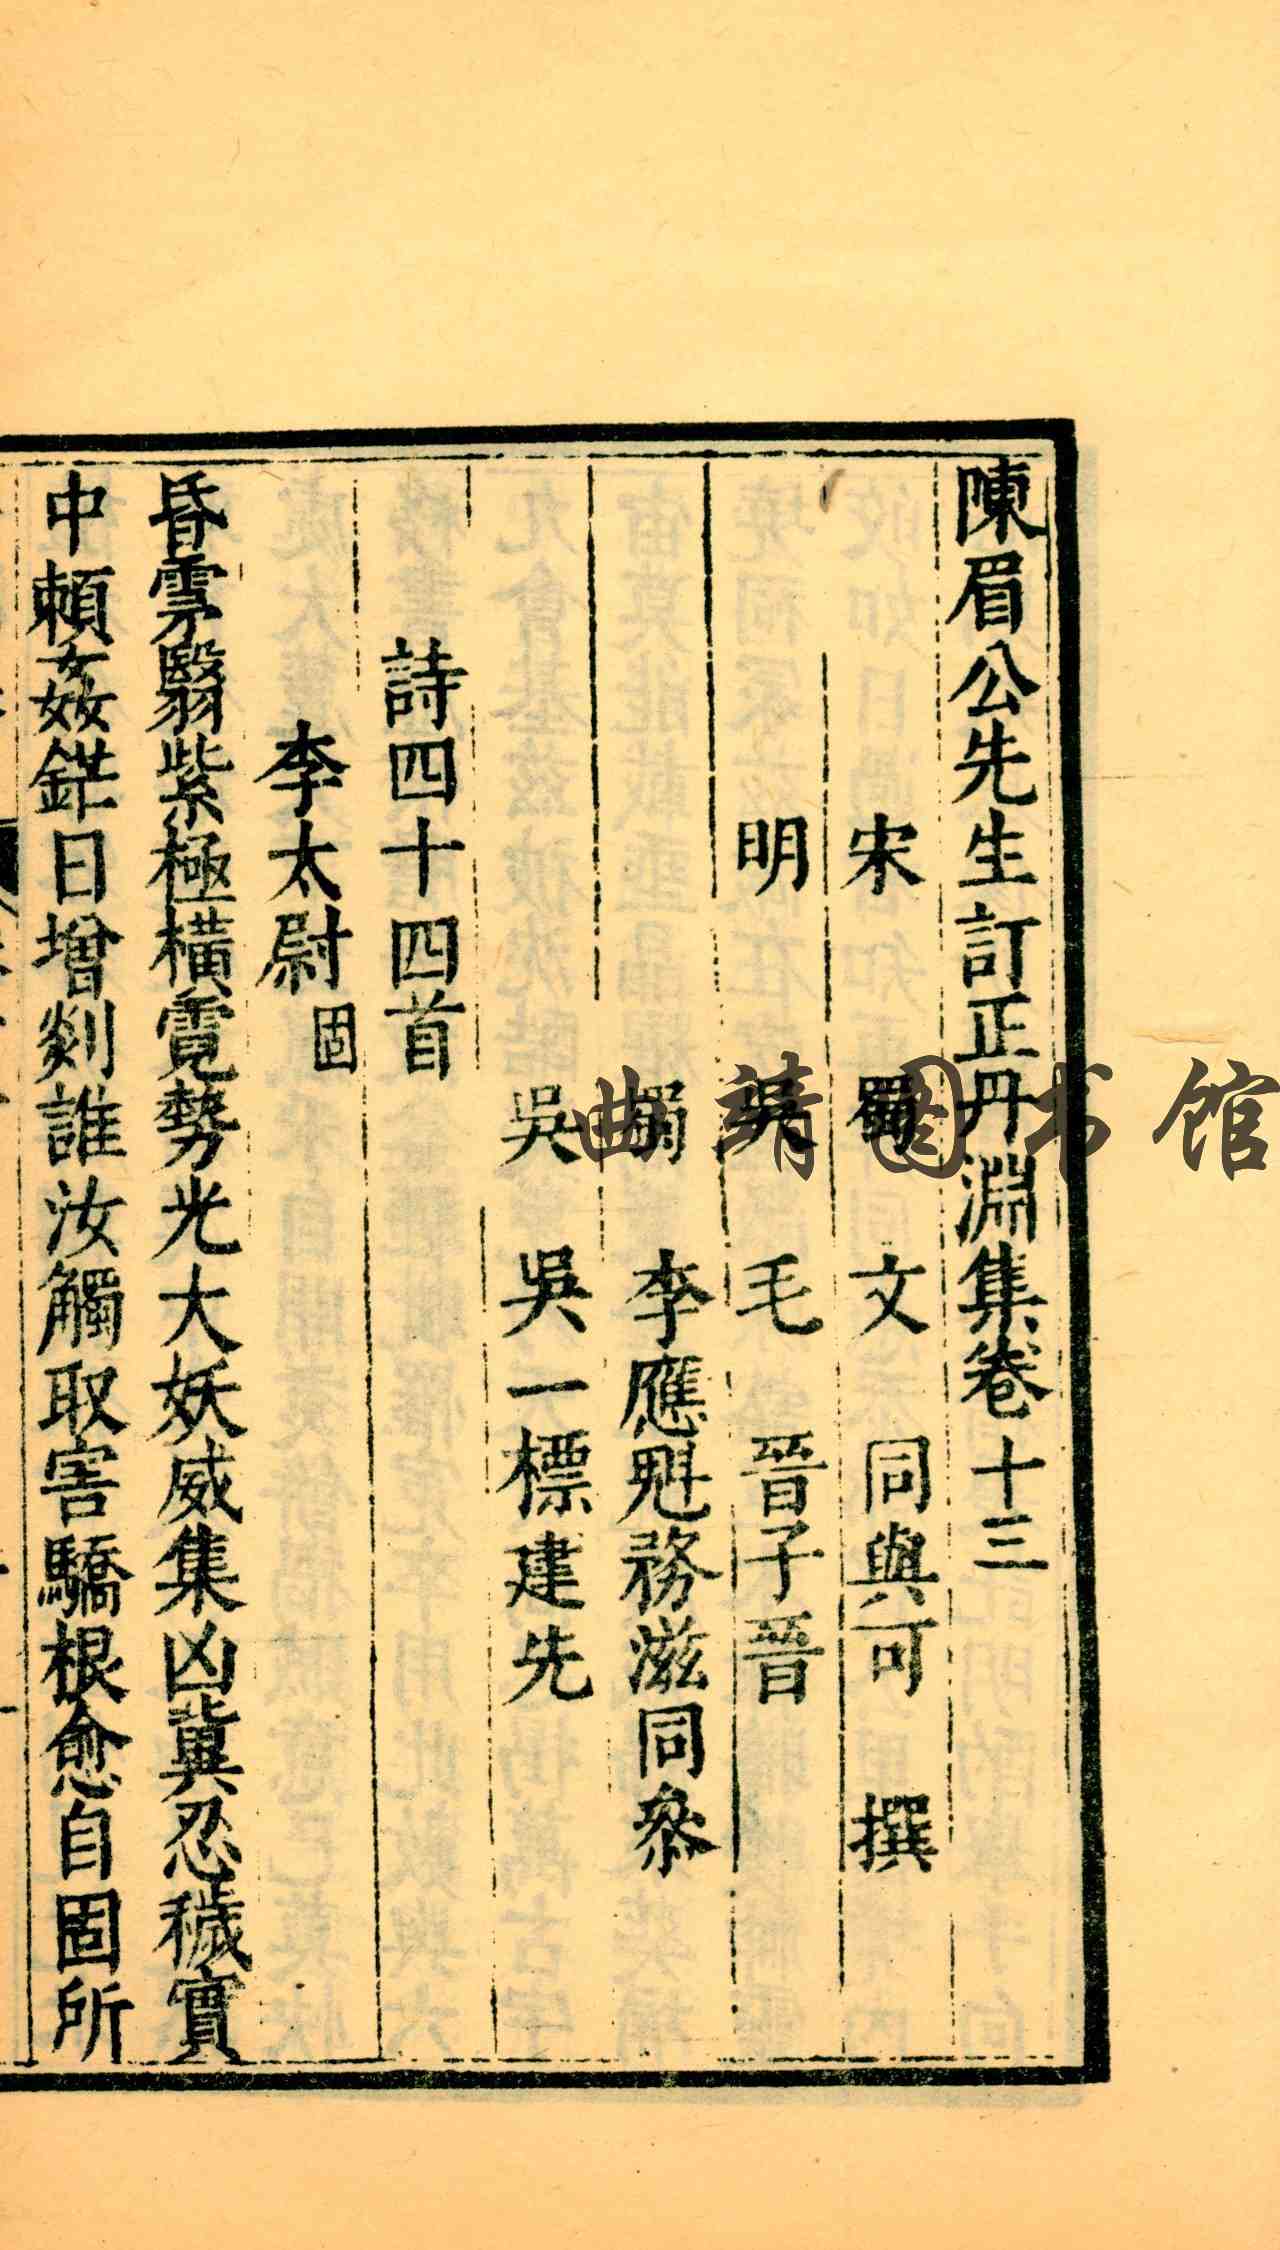 陳眉公先生訂正丹淵集卷十三
宋 蜀 文 同與可 撰
明 吳 毛 晉子晉
蜀 李應魁務滋同叅
吳 吳一標建先
詩四十四首
李太尉固
昏雺翳紫極橫霓勢光大妖威集凶冀忍穢實
中頼姦鋩日增剡誰汝觸取害驕根愈自固所
曲靖图书馆